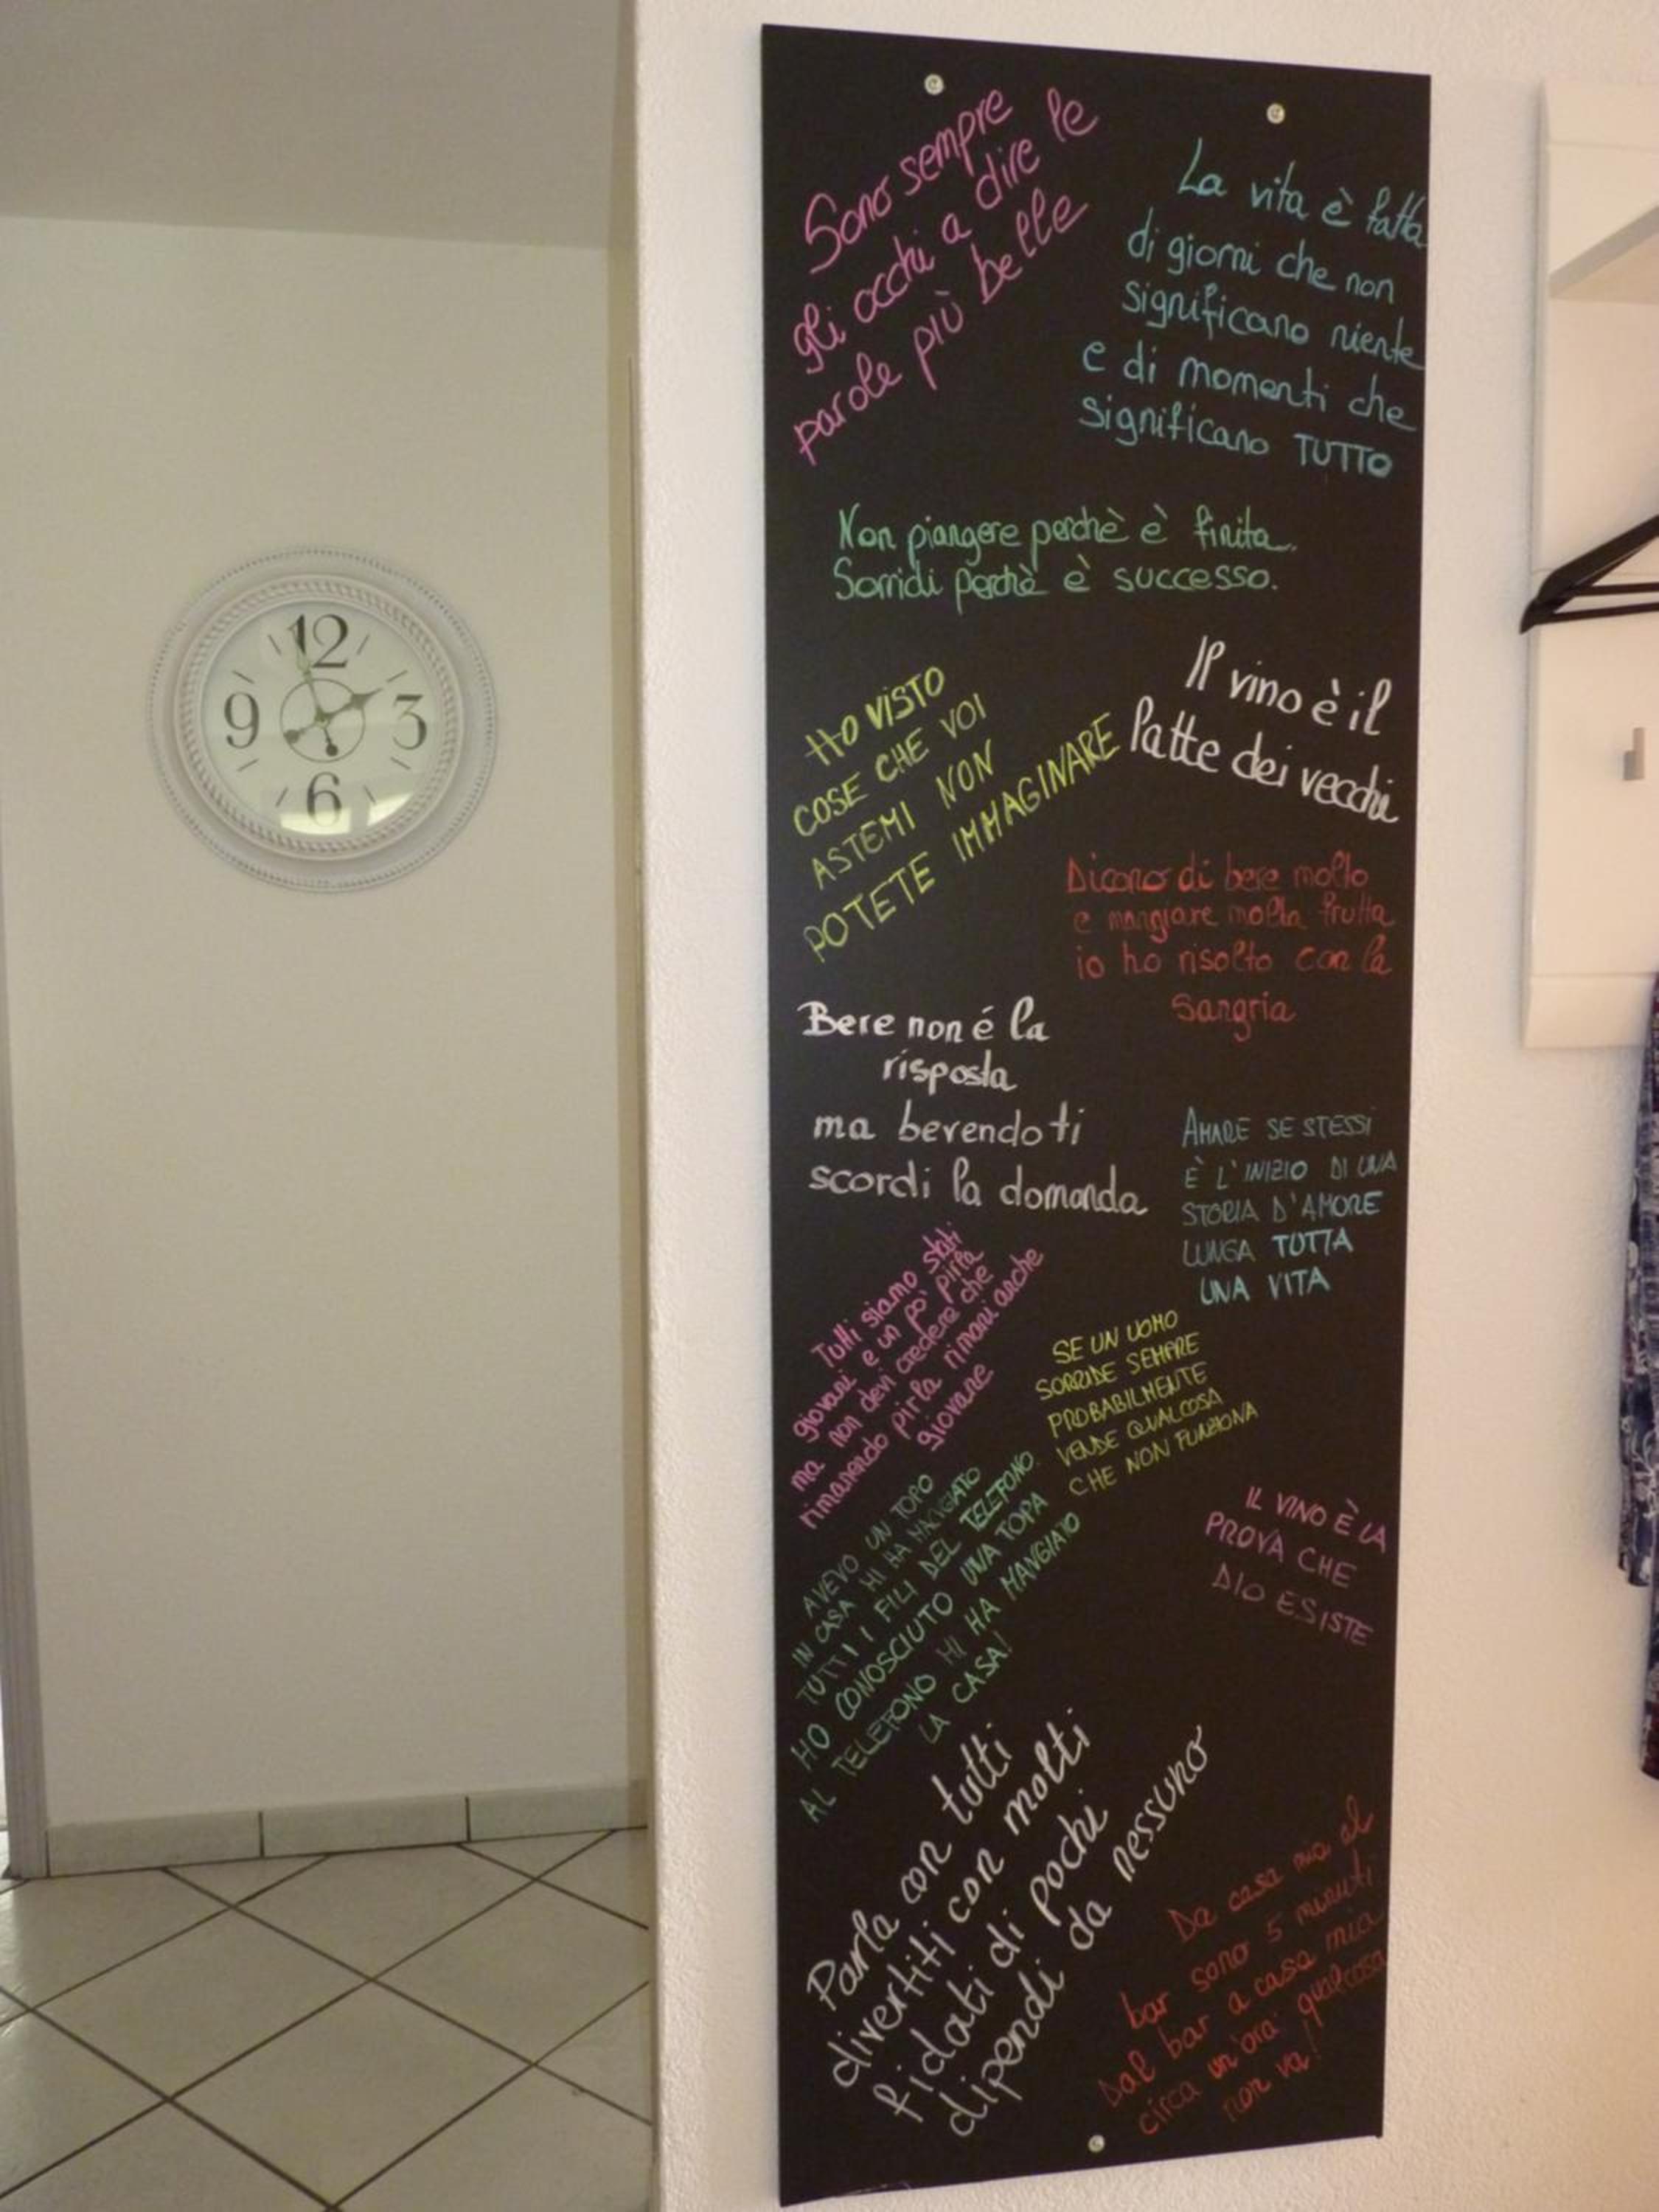 12
3
6
9
Sono sempre
gli occhi a dire le
parole più belle
La vita è fatta
di giorni che non
significano niente
e di momenti che
significano TUTTO
Non piangere perchè è finita.
Sorridi perchè è successo.
HO VISTO
COSE CHE VOI
ASTEMI NON
POTETE IMMAGINARE
Il vino è il
latte dei vecchi
Dicono di bere molto
e mangiare molta frutta
io ho risolto con la
sangria
Bere non é la
risposta
ma berendo ti
scordi la domanda
AMARE SE STESSI
È L'INIZIO DI UNA
STORIA D'AMORE
LUNGA TUTTA
UNA VITA
Tutti siamo stati
giovani e un pò pirla
ma non devi credere che
rimanendo pirla rimani anche
giovane
SE UN UOMO
SORRIDE SEMPRE
PROBABILMENTE
VENDE QUALCOSA
CHE NON FUNZIONA
AVEVO UN TOPO
IN CASA MI HA MANGIATO
TUTTI I FILI DEL TELEFONO.
HO CONOSCIUTO UNA TOPA
AL TELEFONO MI HA MANGIATO
LA CASA!
IL VINO È LA
PROVA CHE
DIO ESISTE
Parla con tutti
divertiti con molti
fidati di pochi
dipendi da nessuno
Da casa mia al
bar sono 5 minuti
Dal bar a casa mia
circa un'ora: qualcosa
non va!